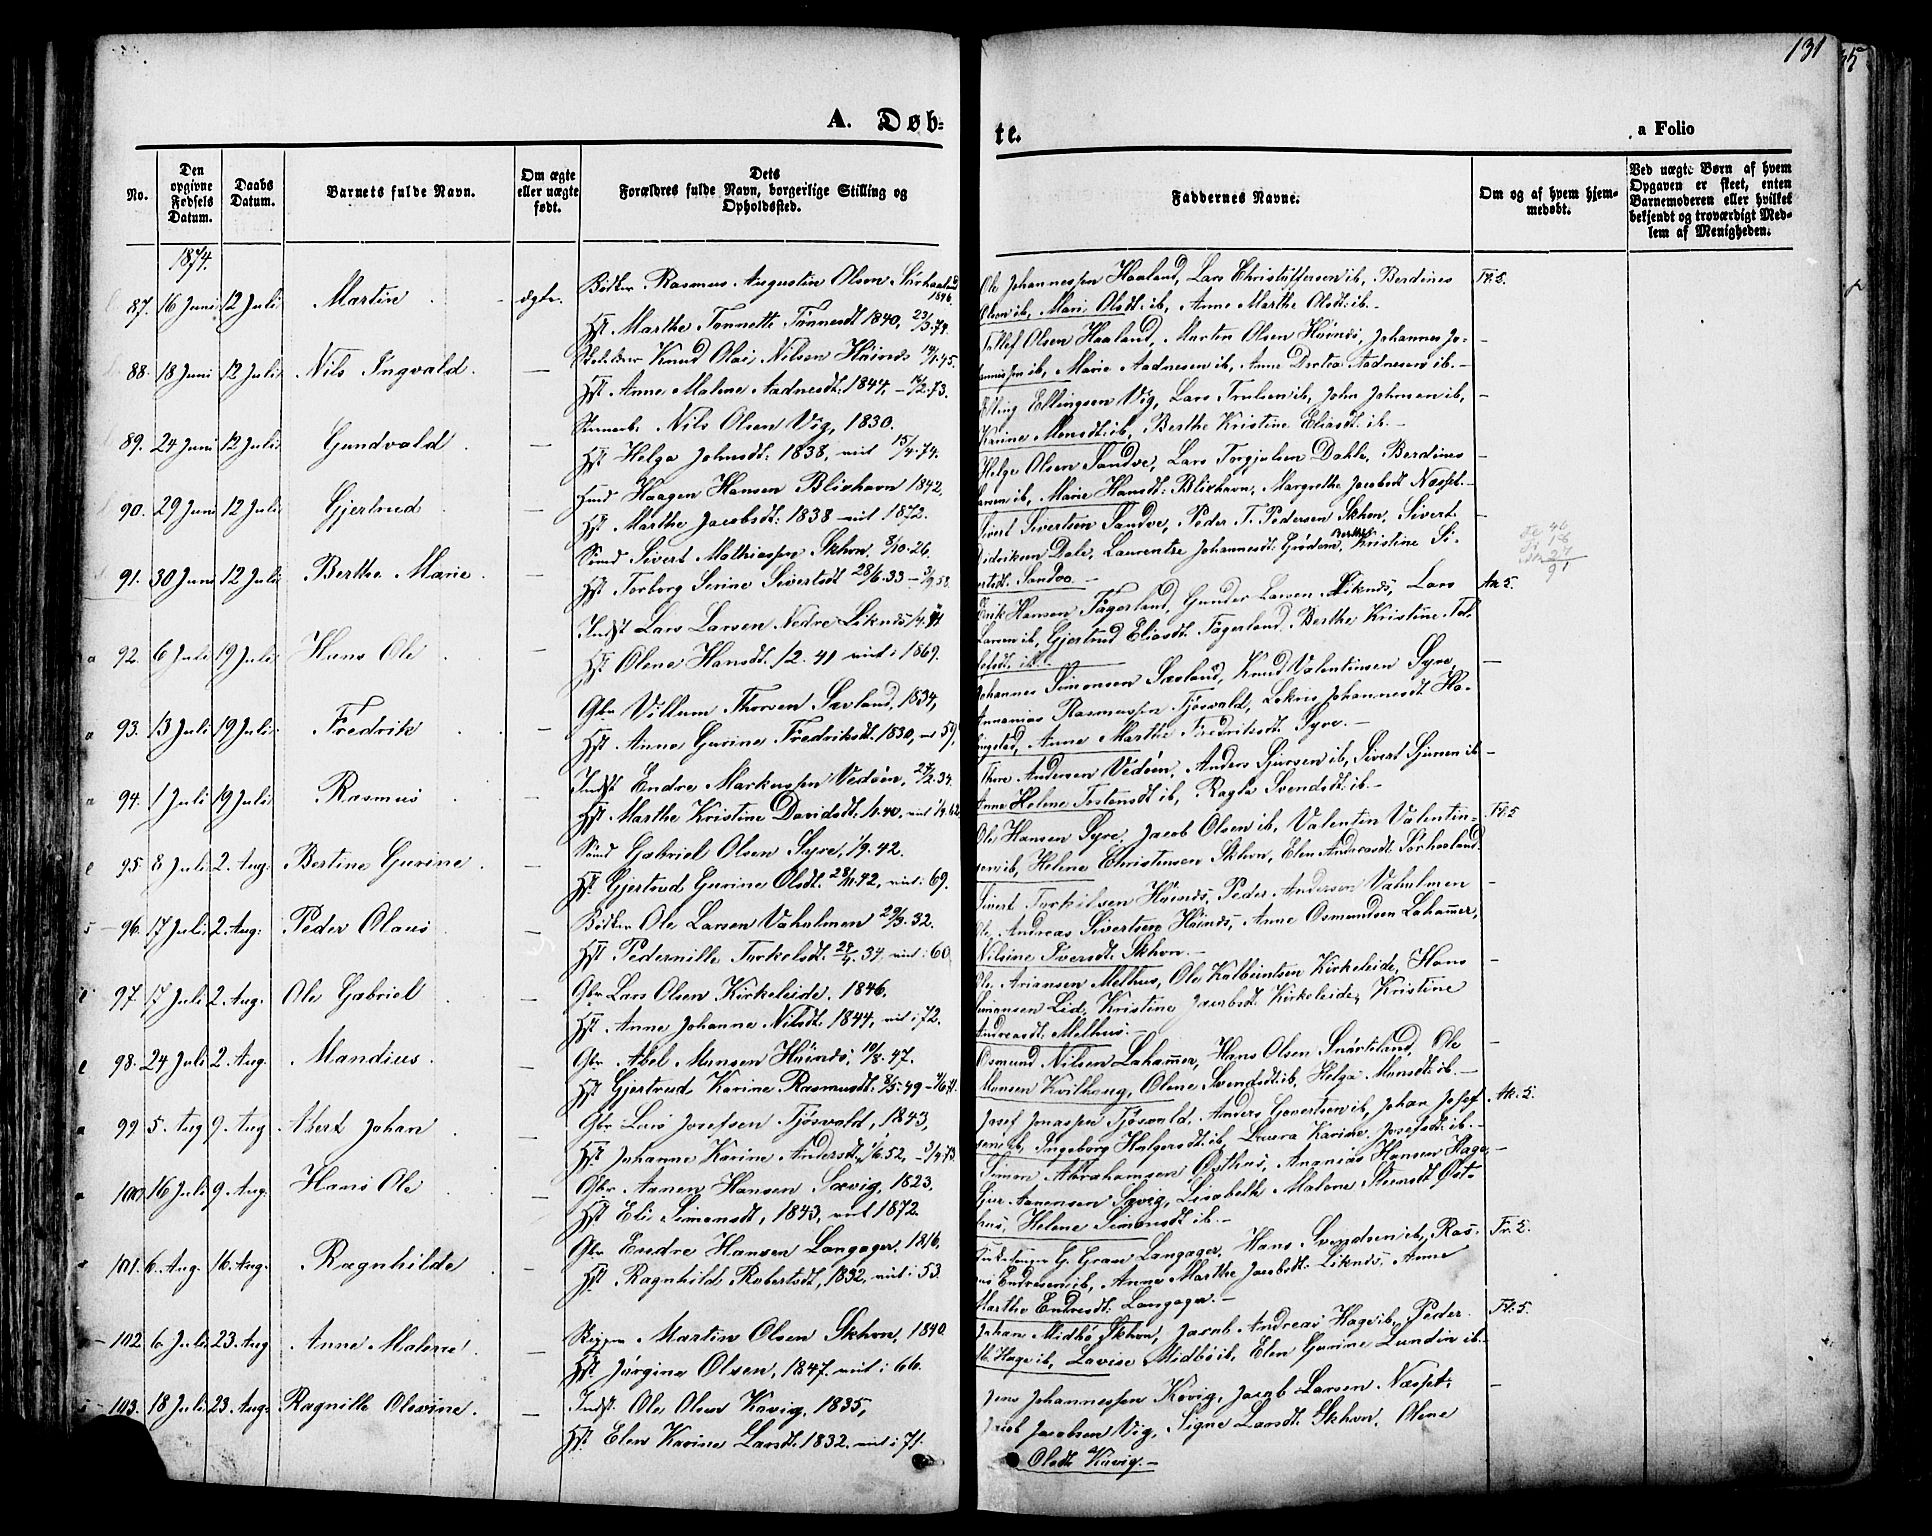 131
A. Døb-
te.
a Folio
No.
Den opgivne Fødsels Datum.
Daabs Datum.
Barnets fulde Navn.
Om ægte eller uægte født.
Dets Forældres fulde Navn, borgerlige Stilling og Opholdssted.
Faddernes Navne.
Om og af hvem hjemmedøbt.
Ved uægte Børn af hvem Opgaven er skeet, enten Barnemoderen eller hvilket bekjendt og troværdigt Medlem af Menigheden.
1874.
87. 16 Juni 12 Juli Martin ægte. Bødker Rasmus Augustin Olsen Sørhaaland 1846.
Hst Marthe Tonnette Tønnesdt 1840, 23/3.74.
Ole Johannessen Haaland, Lars Christoffersen ib, Berdines
Olsen ib, Mari Olsdt: ib, Anne Marthe Olsdt: ib. -
88. 18 Juni 12 Juli Nils Ingvald. — Knud Olai Nilsen Høines 14/1.45.
Hst Anne Malene Aadnesdt: 1844, - 14/2.73.
Tollef Olsen Haaland, Martin Olsen Høines, Johannes Jo-
hannessen ib, Marie Aadnesen ib, Anne Dortea Aadnesen ib. -
89. 24 Juni 12 Juli Gundvald — Nils Olsen Vig, 1830.
Hst Helga Johnsdt: 1838, viet 15/4.74.
Elling Ellingsen Vig, Lars Trulsen ib, John Johnsen ib,
Karine Monsdt: ib, Berthe Kristine Eliasdt: ib. -
90. 29 Juni 12 Juli Gjertrud — Huusd Haagen Hansen Blixhavn 1842,
Hst Marthe Jacobsdt: 1838 - viet 1872.
Helge Olsen Sandve, Lars Torgjulsen Dahle, Berdines
Larsen ib, Marie Hansdt: Blixhavn, Margrethe Jacobsdt Næsset. -
91. 30 Juni 12 Juli Berthe Marie. — Smed Sivert Mathiassen Skhvn. 8/10.26.
Hst Torborg Serine Sivertsdt 28/6.33 - 3/9.58.
Sivert Sivertsen Sandve, Peder T. Pedersen Skhvn, Sivert
Didriksen Dale, Laurentze Johannesdt. Grødem, Berthe Kristine Si-
vertsdt. Sandve. -
92. 6 Juli 19 Juli Hans Ole — Indst Lars Larsen Nedre Liknes
Hst Olene Hansdt. 12.41 viet i 1869.
Erik Hansen Fagerland, Gunder Larsen Liknes, Lars
Larsen ib, Gjertrud Eliasdt. Fagerland, Berthe Kristine Tol-
lefsdt. ib. -
Ax 5.
93. 13 Juli 19 Juli Fredrik — Gbr Villum Thorsen Sævland, 1834,
Hst Anna Gurine Fredriksdt. 1830, - 59,
Johannes Simonsen Sævland, Knud Valentinsen Syre,
Annanias Rasmussen Tjøsvold, Johannesdt Ho-
Anne Marthe Fredriksdt. Syre. -
94. 1 Juli 19 Juli Rasmus — Indst Endre Markussen Vedøen, 27/2.34.
Hst Marthe Kristine Davidsdt. 1/1.40, viet 62.
Thore Andersen Vedøen, Anders Gjersen ib, Sivert Gjersen ib
Anne Helene Tostensdt ib, Ragla Svendsdt ib. -
95. 8 Juli 2. Aug. Bertine Gurine. — Smed Gabriel Olsen Syre, 1/9.42.
Hst Gjertrud Gurine Olsdt. 28/11.42, viet i 69.
Ole Hansen Syre, Jacob Olsen ib, Valentin Valentin-
sen ib, Helene Christensen Skhvn, Elen Andreasdt Sørhaaland.
96. 17 Juli 2 Aug: Peder Olaus — Bødker Ole Larsen Vaholmen 29/3.32.
Hst Pedernille Torkelsdt. 34, viet i 60
Sivert Torkilsen Høines, Peder Andersen Vaholmen
Ole Andreas Sivertsen Høines, Anne Osmundsen Lahammer,
Nilsine Iversdt: Skhvn. -
97. 17 Juli 2. Aug. Ole Gabriel — Gbr Lars Olsen Kirkeleide. 1846,
Hst. Anne Johanne Nilsdt. 1844, viet i 72.
Ole Ariansen Melhus, Ole Kolbeintsen Kirkeleide, Hans
Simonsen Lid, Kristine Jacobsdt Kirkeleide, Kristine
Andreasdt. Melhus. -
98. 24 Juli 2. Aug. Mandius. — Gbr. Abel Monsen Høines, 10/8.47.
Hst Gjertrud Karine Rasmusdt. 8/5.49 -
Osmund Nilsen Lahammer, Hans Olsen Snørteland, Ole
Monsen Kvilhaug, Olene Svendsdt: ib, Helga Monsdt: ib. -
99 5. Aug 9. Aug Abert Johan — Gbr Lars Josefsen Tjøsvold, 1843,
Hst. Johanne Karine Andersdt, 1/6.52, - 3/4.73
Josef Jonassen Tjøsvold, Anders Govertsen ib, Johan Josef-
sen ib, Ingeborg Holgersdt: ib, Laura Karine Josefsdt: ib. -
Ax. 5.
100 16 Juli 9 Aug. Hans Ole — Gbr. Aanen Hansen Sævig, 1823.
Hst Eli Simonsdt, 1843, viet 1872.
Simon Abrahamsen Østhus, Ananias Hansen Hage,
Gjer Aanensen Sævig, Lisabeth Malene Steensdt Øst-
hus, Helene Simonsdt ib. -
101. 6. Aug. 16. Aug. Ragnhilde — Gbr. Endre Hansen Langager, 1816.
Hst. Ragnhild Robertsdt, 1832, viet i 53.
G. Grave Langager, Hans Svendsen ib, Ras-
mus Endresen ib, Anne Marthe Jacobsdt. Liknes, Anne
Marthe Endresdt: Langager. -
102. 6. Juli 23. Aug Anne Malene. — Skipper Martin Olsen Skhvn, 1840.
Hst. Jørgine Olsen, 1847. viet i 66.
Johan Midbø Skhvn, Jacob Andreas Hage ib, Peder
Hage ib, Lovise Midbø ib, Elen Gurine Lundin ib. -
103. 18 Juli 23. Aug. Ragnille Olevine. — Indst: Ole Olsen Køvig, 1835,
Hst. Elen Karine Larsdt. 1832. viet i 71.
Jens Johannessen Køvig, Jacob Larsen Næsset,
Jacob Jacobsen Vig, Signe Larsdt. Skhvn. Olene
Olsdt. Køvig. -